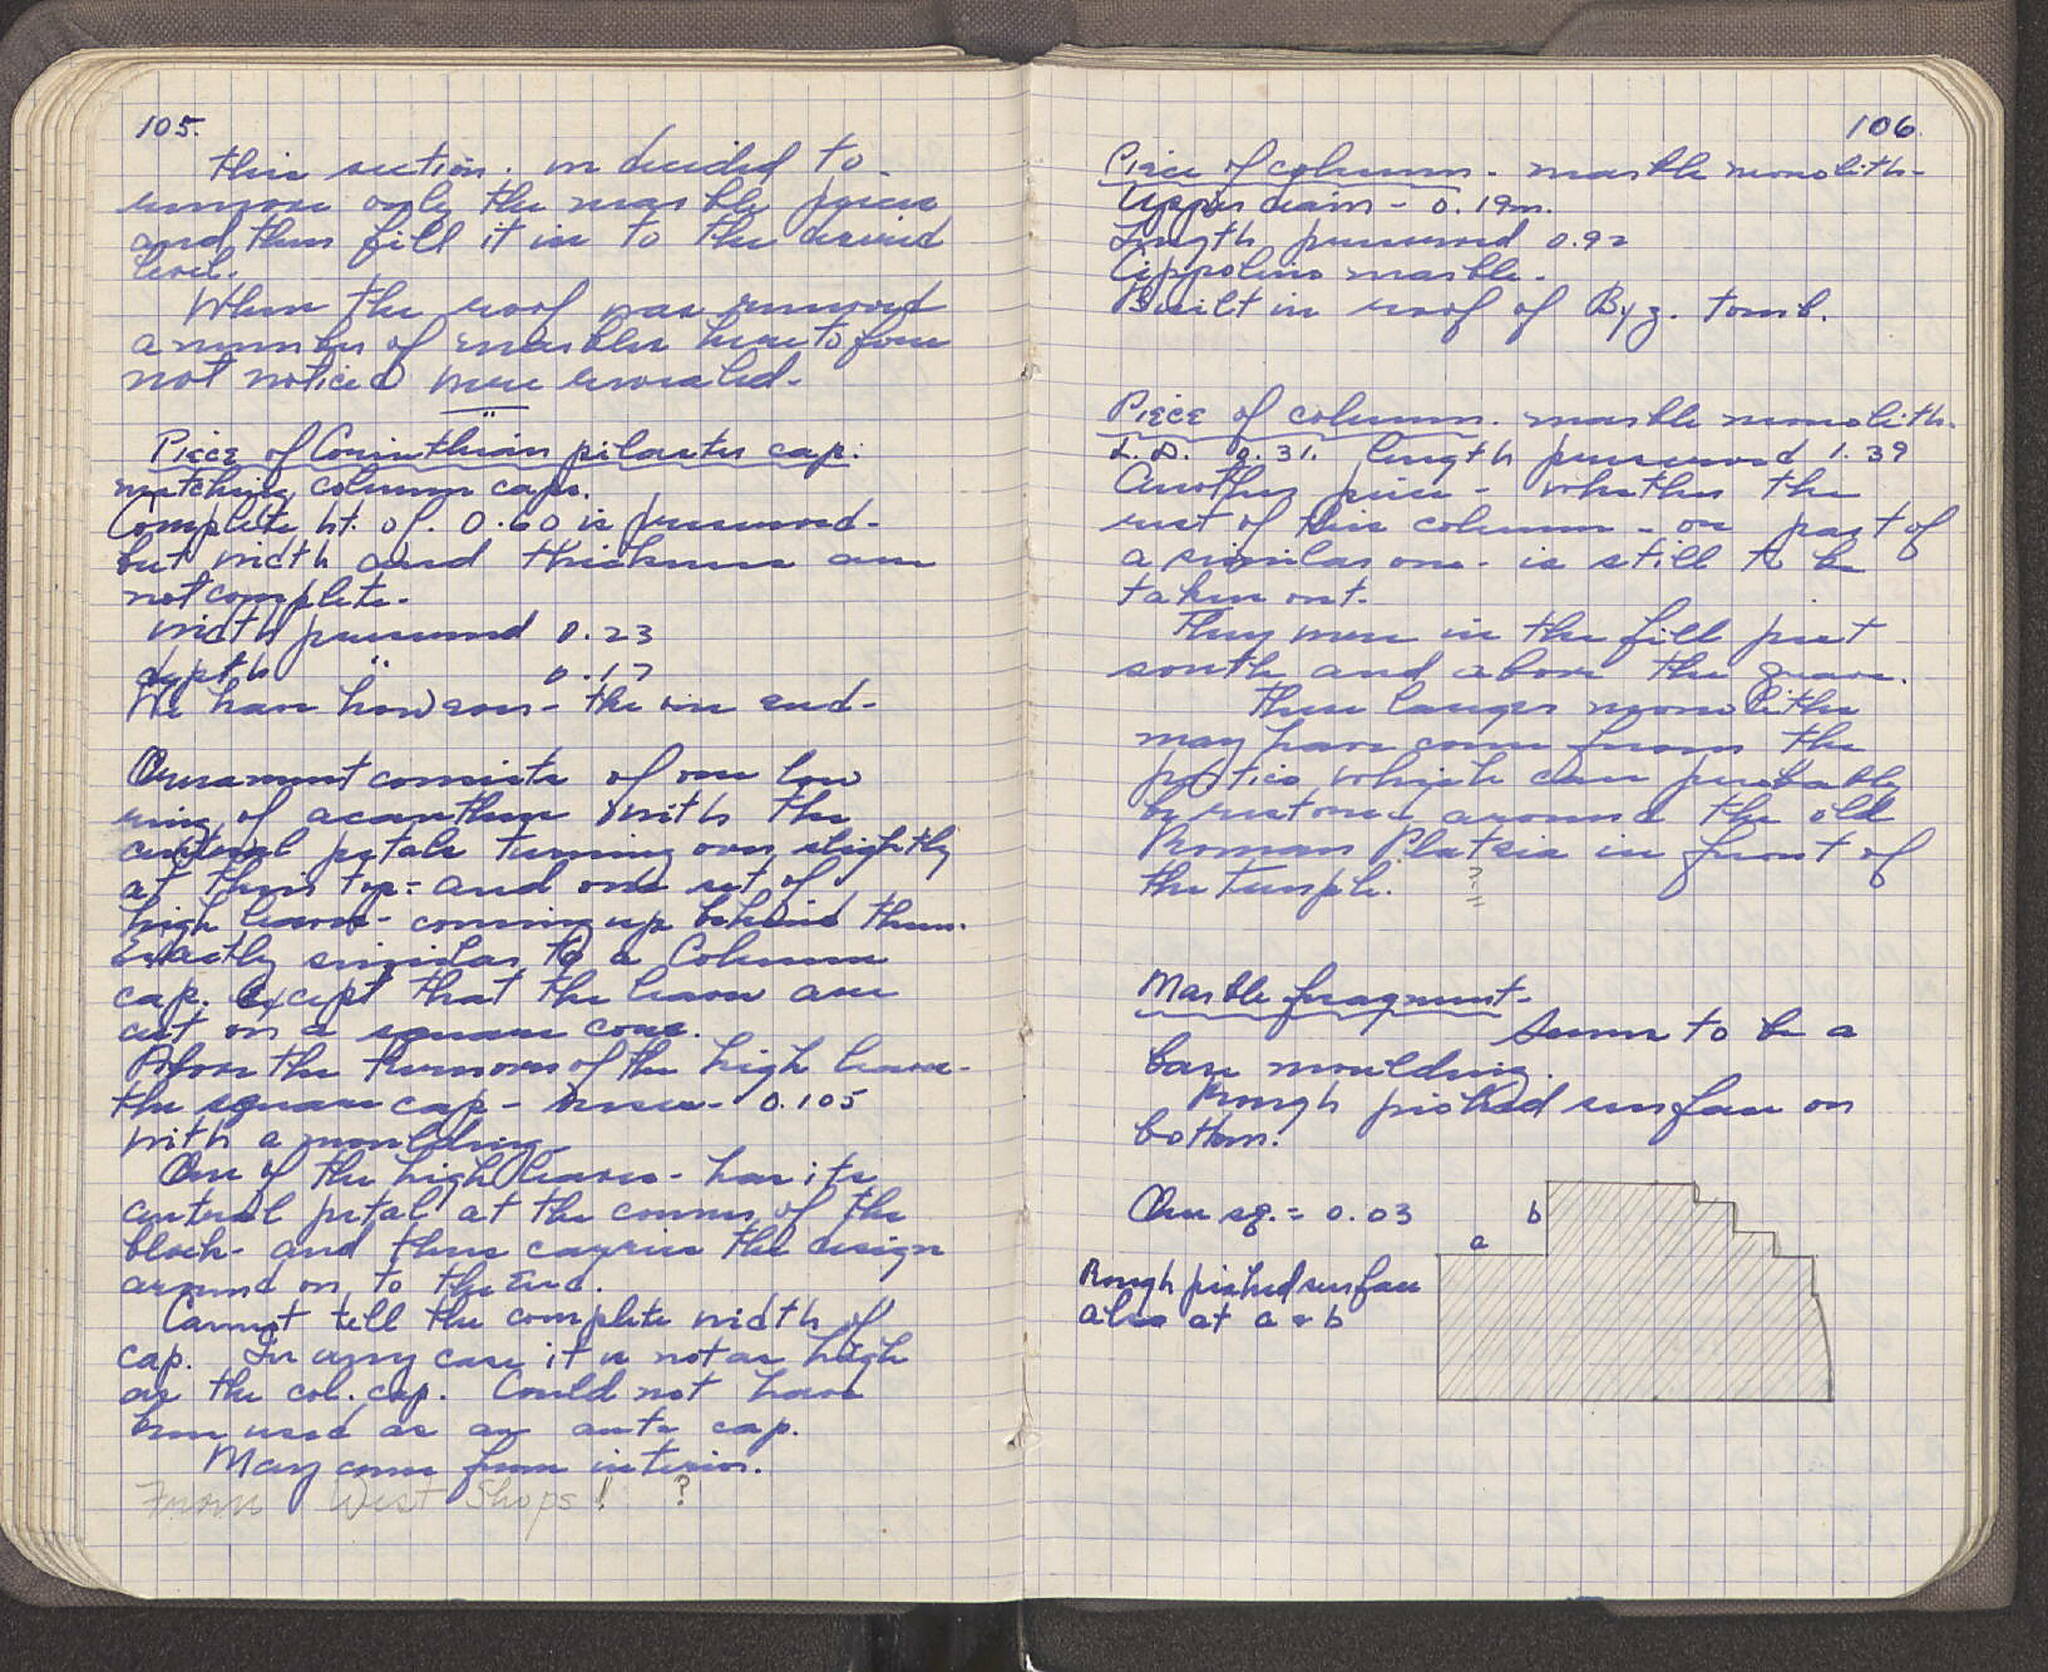 105.
this section. we decided to
remove only the marble pieces
and then fill it in to the desired
level.
When the roof was removed
a number of marbles heretofore
not noticed were revealed.
Piece of Corinthian pilaster cap.
matching column caps.
Complete ht. of. 0.60 is preserved-
but width and thickness are
not complete.
width preserved 0.23
depth " 0.17
We have however - the one end-
Ornament consists of one low
ring of acanthus with the
central petals turning over slightly
at their top - and one set of
high leaves - coming up behind them.
Exactly similar to a Column
cap. except that the leaves are
cut on a square core.
Above the turnovers of the high leaves-
the square cap - rises - 0.105
with a moulding
One of the high leaves - has its
central petal at the corner of the
block - and thus carries the design
around on to the End.
Cannot tell the complete width of
cap. In any case it is not as high
as the col. cap. Could not have
been used as an anta cap.
May come from interior.
From West Shops! ?
106
Piece of column. marble monolith-
Upper diam - 0.19m.
Length preserved 0.92
Cippolino marble.
Built in roof of Byz. tomb.
Piece of column. marble monolith.
L.D. 0.31. length preserved 1.39
Another piece - whether the
rest of this column - or part of
a similar one - is still to be
taken out.
They were in the fill just
south and above the grave.
These larger monoliths
may have come from the
portico which can probably
be restored around the old
Roman Plateia in front of
the temple. ?
Marble fragment.
Seems to be a
base moulding.
Rough picked surface on
bottom.
One sq. = 0.03
b
a
Rough picked surface
also at a & b